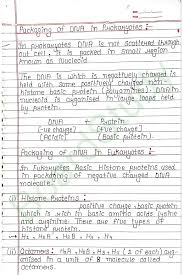 Packaging of DNA in Prokaryotes :-
In prokaryotes DNA is not scattered through
out cell, it is packed in small region
known as nucleoid
The DNA which is negatively charged is
held with some positively charged non-
histone basic protein (polyamines). DNA in
nucleoid is organised in large loops held
by protein.
DNA + Protein
(-ve charge) (+ve charge)
(Acidic) (Basic protein)
Packaging of DNA in Eukaryotes :-
In Eukaryotes Basic Histone proteins used
in packaging of negative charged DNA
molecule.
(i) Histone Proteins :-
positive charge, basic protein
which is rich in basic amino acids lysine
and arginine. These are five types of
histone proteins.
(ii) Octamers : H2A, H2B, H3, H4 (2 of each) org-
anised in a unit of 8 molecule called
octamers.